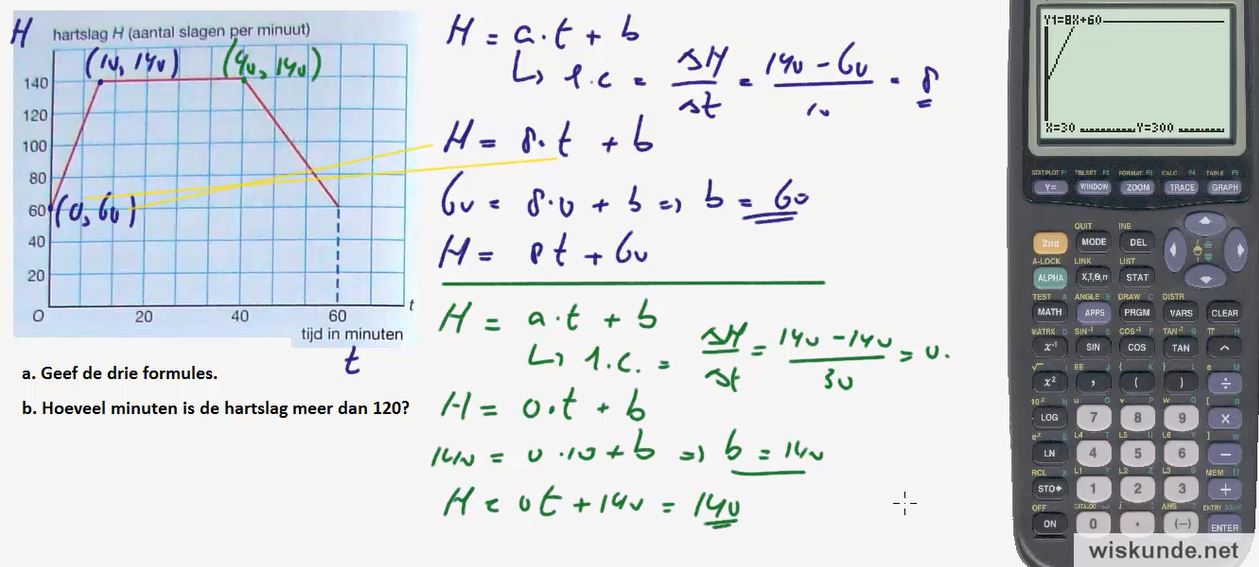 H hartslag H (aantal slagen per minuut)
(10, 140) (40, 140)
140
120
100
80
60 (0, 60)
40
20
O 20 40 60 t
tijd in minuten
t
a. Geef de drie formules.
b. Hoeveel minuten is de hartslag meer dan 120?
H = a·t + b
↳ r.c = ΔH/Δt = 140 - 60/10 = 8
H = 8·t + b
60 = 8·0 + b => b = 60
H = 8t + 60
H = a·t + b
↳ r.c. = ΔH/Δt = 140 - 140/30 = 0.
H = 0·t + b
140 = 0·10 + b => b = 140
H = 0t + 140 = 140
Y1=8X+60
X=30 Y=300
STAT PLOT F1 TBLSET F2 FORMAT F3 CALC F4 TABLE F5
Y= WINDOW ZOOM TRACE GRAPH
QUIT INS
2nd MODE DEL
A-LOCK LINK LIST
ALPHA X,T,Θ,n STAT
TEST A ANGLE B DRAW C DISTR
MATH APPS PRGM VARS CLEAR
MATRX D SIN⁻¹ E COS⁻¹ F TAN⁻¹ G π H
x⁻¹ SIN COS TAN ^
√ I EE J { K } L e M
x² , ( ) ÷
10ˣ N u O v P w Q [ R
LOG 7 8 9 ×
eˣ S L4 T L5 U L6 V ] W
LN 4 5 6 −
RCL X L1 Y L2 Z L3 θ MEM "
STO▸ 1 2 3 +
OFF CATALOG i : ANS ? ENTRY SOLVE
ON 0 . (−) ENTER
wiskunde.net